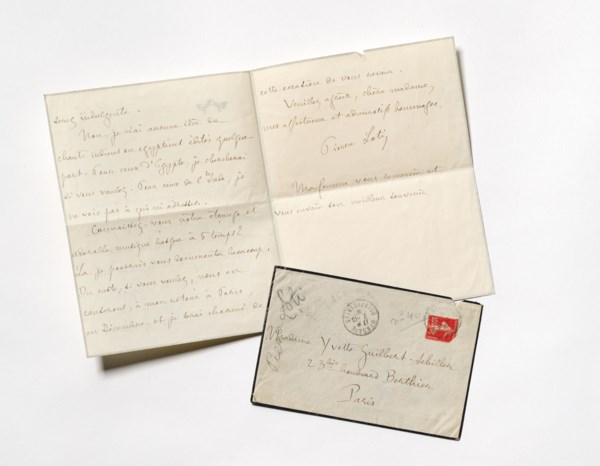 soyez indulgente.
Non, je n'ai aucune idée de
chants indiens ou égyptiens édités quelque
part. Pour ceux d'Egypte, je chercherai
si vous voulez. Pour ceux de l'Inde, je
ne vois pas à qui m'adresser.
Connaissez-vous notre étrange et
adorable musique basque à 5 temps?
Là je pourrais vous documenter beaucoup.
Du reste, si vous voulez, nous en
causerons, à mon retour à Paris,
en Décembre, et je serai charmé de
cette occasion de vous revoir.
Veuillez agréer, chère madame,
mes respectueux et admiratifs hommages.
Pierre Loti
vous envoie son meilleur souvenir
Pierre Loti
Madame Yvette Guilbert-Schiller
23 bis boulevard Berthier
Paris